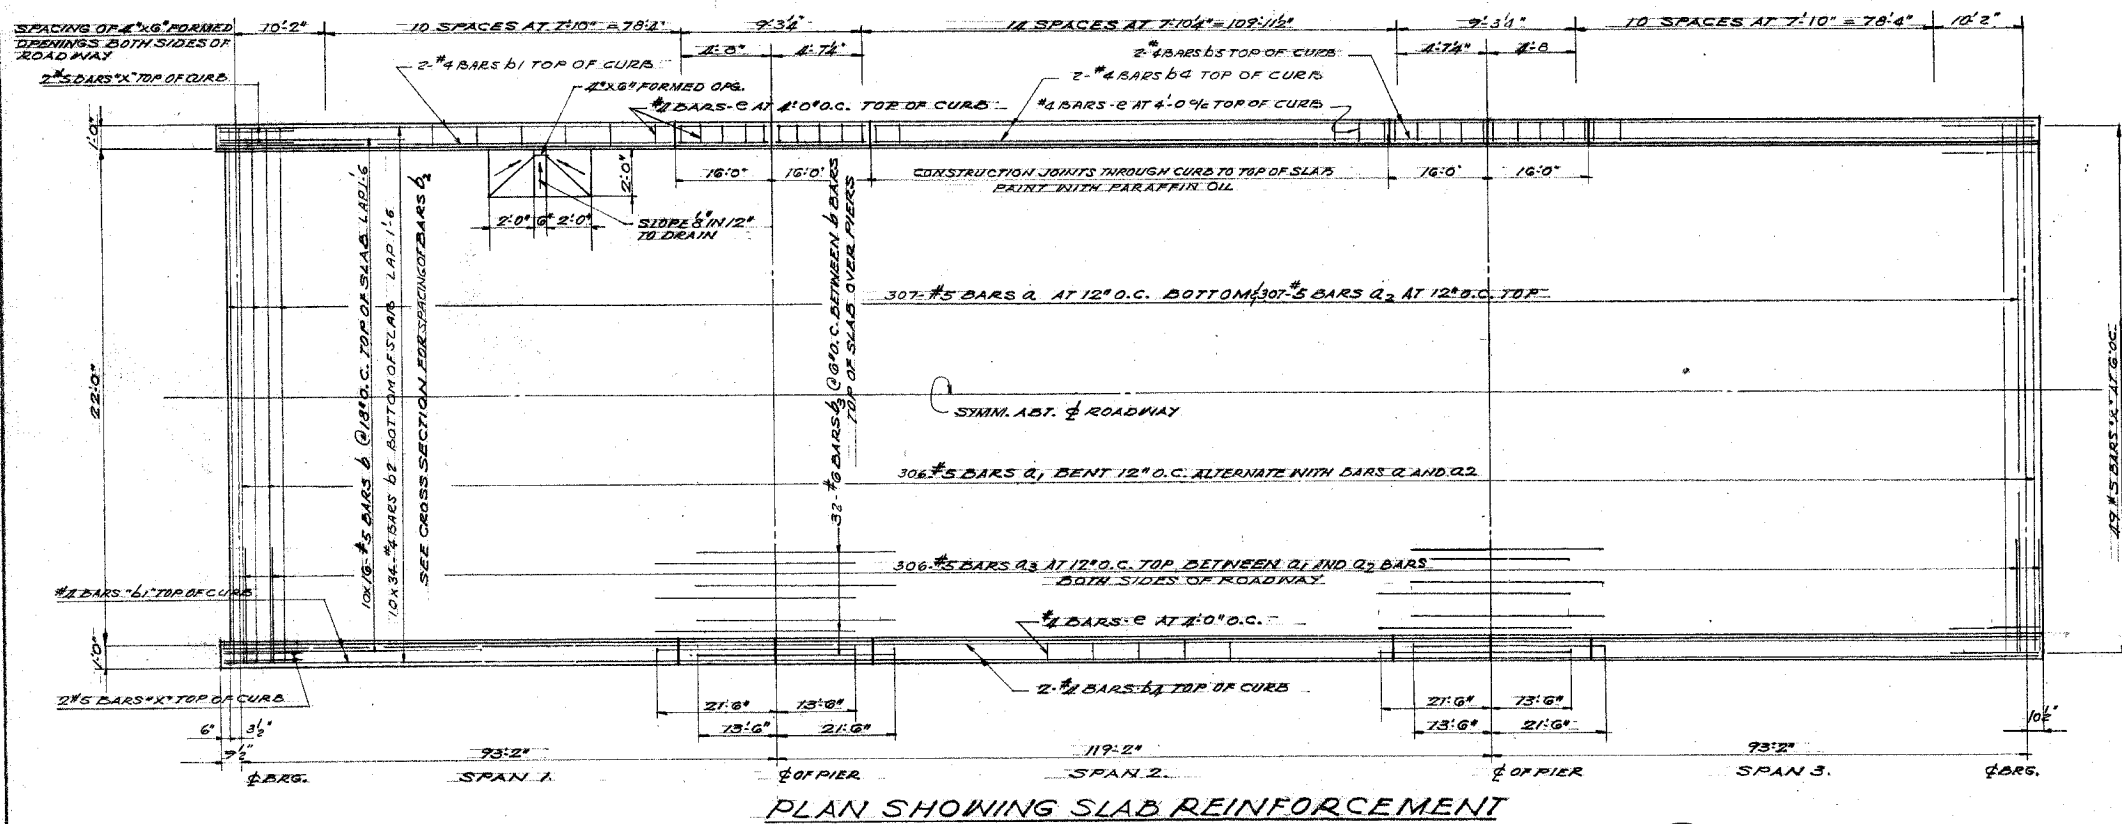 SPACING OF 4"X6" FORMED
OPENINGS BOTH SIDES OF
ROADWAY
10'-2"
10 SPACES AT 7'-10" = 78'-4"
9'-3¼"
14 SPACES AT 7'-10¼" = 109'-11½"
9'-3¼"
10 SPACES AT 7'-10" = 78'-4"
10'-2"
4'-8"
4'-7¼"
4'-7¼"
4'-8
2 #5 BARS "X" TOP OF CURB
2-#4 BARS b1 TOP OF CURB
4"X6" FORMED OPG.
#4 BARS-e AT 4'-0" O.C. TOP OF CURB
2-#4 BARS b5 TOP OF CURB
2-#4 BARS b4 TOP OF CURB
#4 BARS-e AT 4'-0 % TOP OF CURB
1'-0"
16'-0"
16'-0"
CONSTRUCTION JOINTS THROUGH CURB TO TOP OF SLAB
PAINT WITH PARAFFIN OIL
16'-0"
16'-0"
2'-0"
2'-0"
6"
2'-0"
SLOPE ⅛" IN 12"
TO DRAIN
22'-0"
10X16-#5 BARS b @ 18" O.C. TOP OF SLAB LAP 1'-6
10X34-#4 BARS b2 BOTTOM OF SLAB LAP 1'-6
SEE CROSS SECTION FOR SPACING OF BARS b2
32-#6 BARS b3 @ 6" O.C. BETWEEN b BARS
TOP OF SLAB OVER PIERS
307-#5 BARS a AT 12" O.C. BOTTOM & 307-#5 BARS a2 AT 12" O.C. TOP
SYMM. ABT. ℄ ROADWAY
306-#5 BARS a1 BENT 12" O.C. ALTERNATE WITH BARS a AND a2
306-#5 BARS a3 AT 12" O.C. TOP BETWEEN a1 AND a2 BARS
BOTH SIDES OF ROADWAY
49 #5 BARS "X" AT 6" OC
#4 BARS "b1" TOP OF CURB
#4 BARS-e AT 4'-0" O.C.
1'-0"
2 #5 BARS "X" TOP OF CURB
2-#4 BARS b4 TOP OF CURB
21'-6"
13'-6"
21'-6"
13'-6"
13'-6"
21'-6"
13'-6"
21'-6"
6"
3½"
9½"
10½"
93'-2"
119'-2"
93'-2"
℄ BRG.
SPAN 1.
℄ OF PIER
SPAN 2.
℄ OF PIER
SPAN 3.
℄ BRG.
PLAN SHOWING SLAB REINFORCEMENT